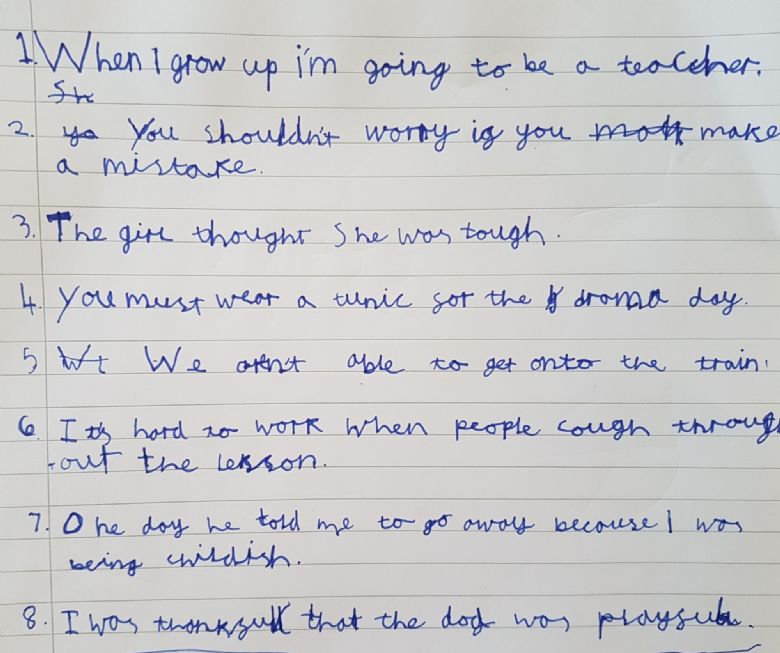 1. When I grow up i'm going to be a teacher.
Sh
2. yo You shouldn't worry if you mott make
a mistake.
3. The girl thought She was tough.
4. You must wear a tunic for the drama day.
5 Wt We aren't able to get onto the train.
6. It's hard to work when people cough through
-out the lesson.
7. One day he told me to go away because I was
being childish.
8. I was thankful that the dog was playful.